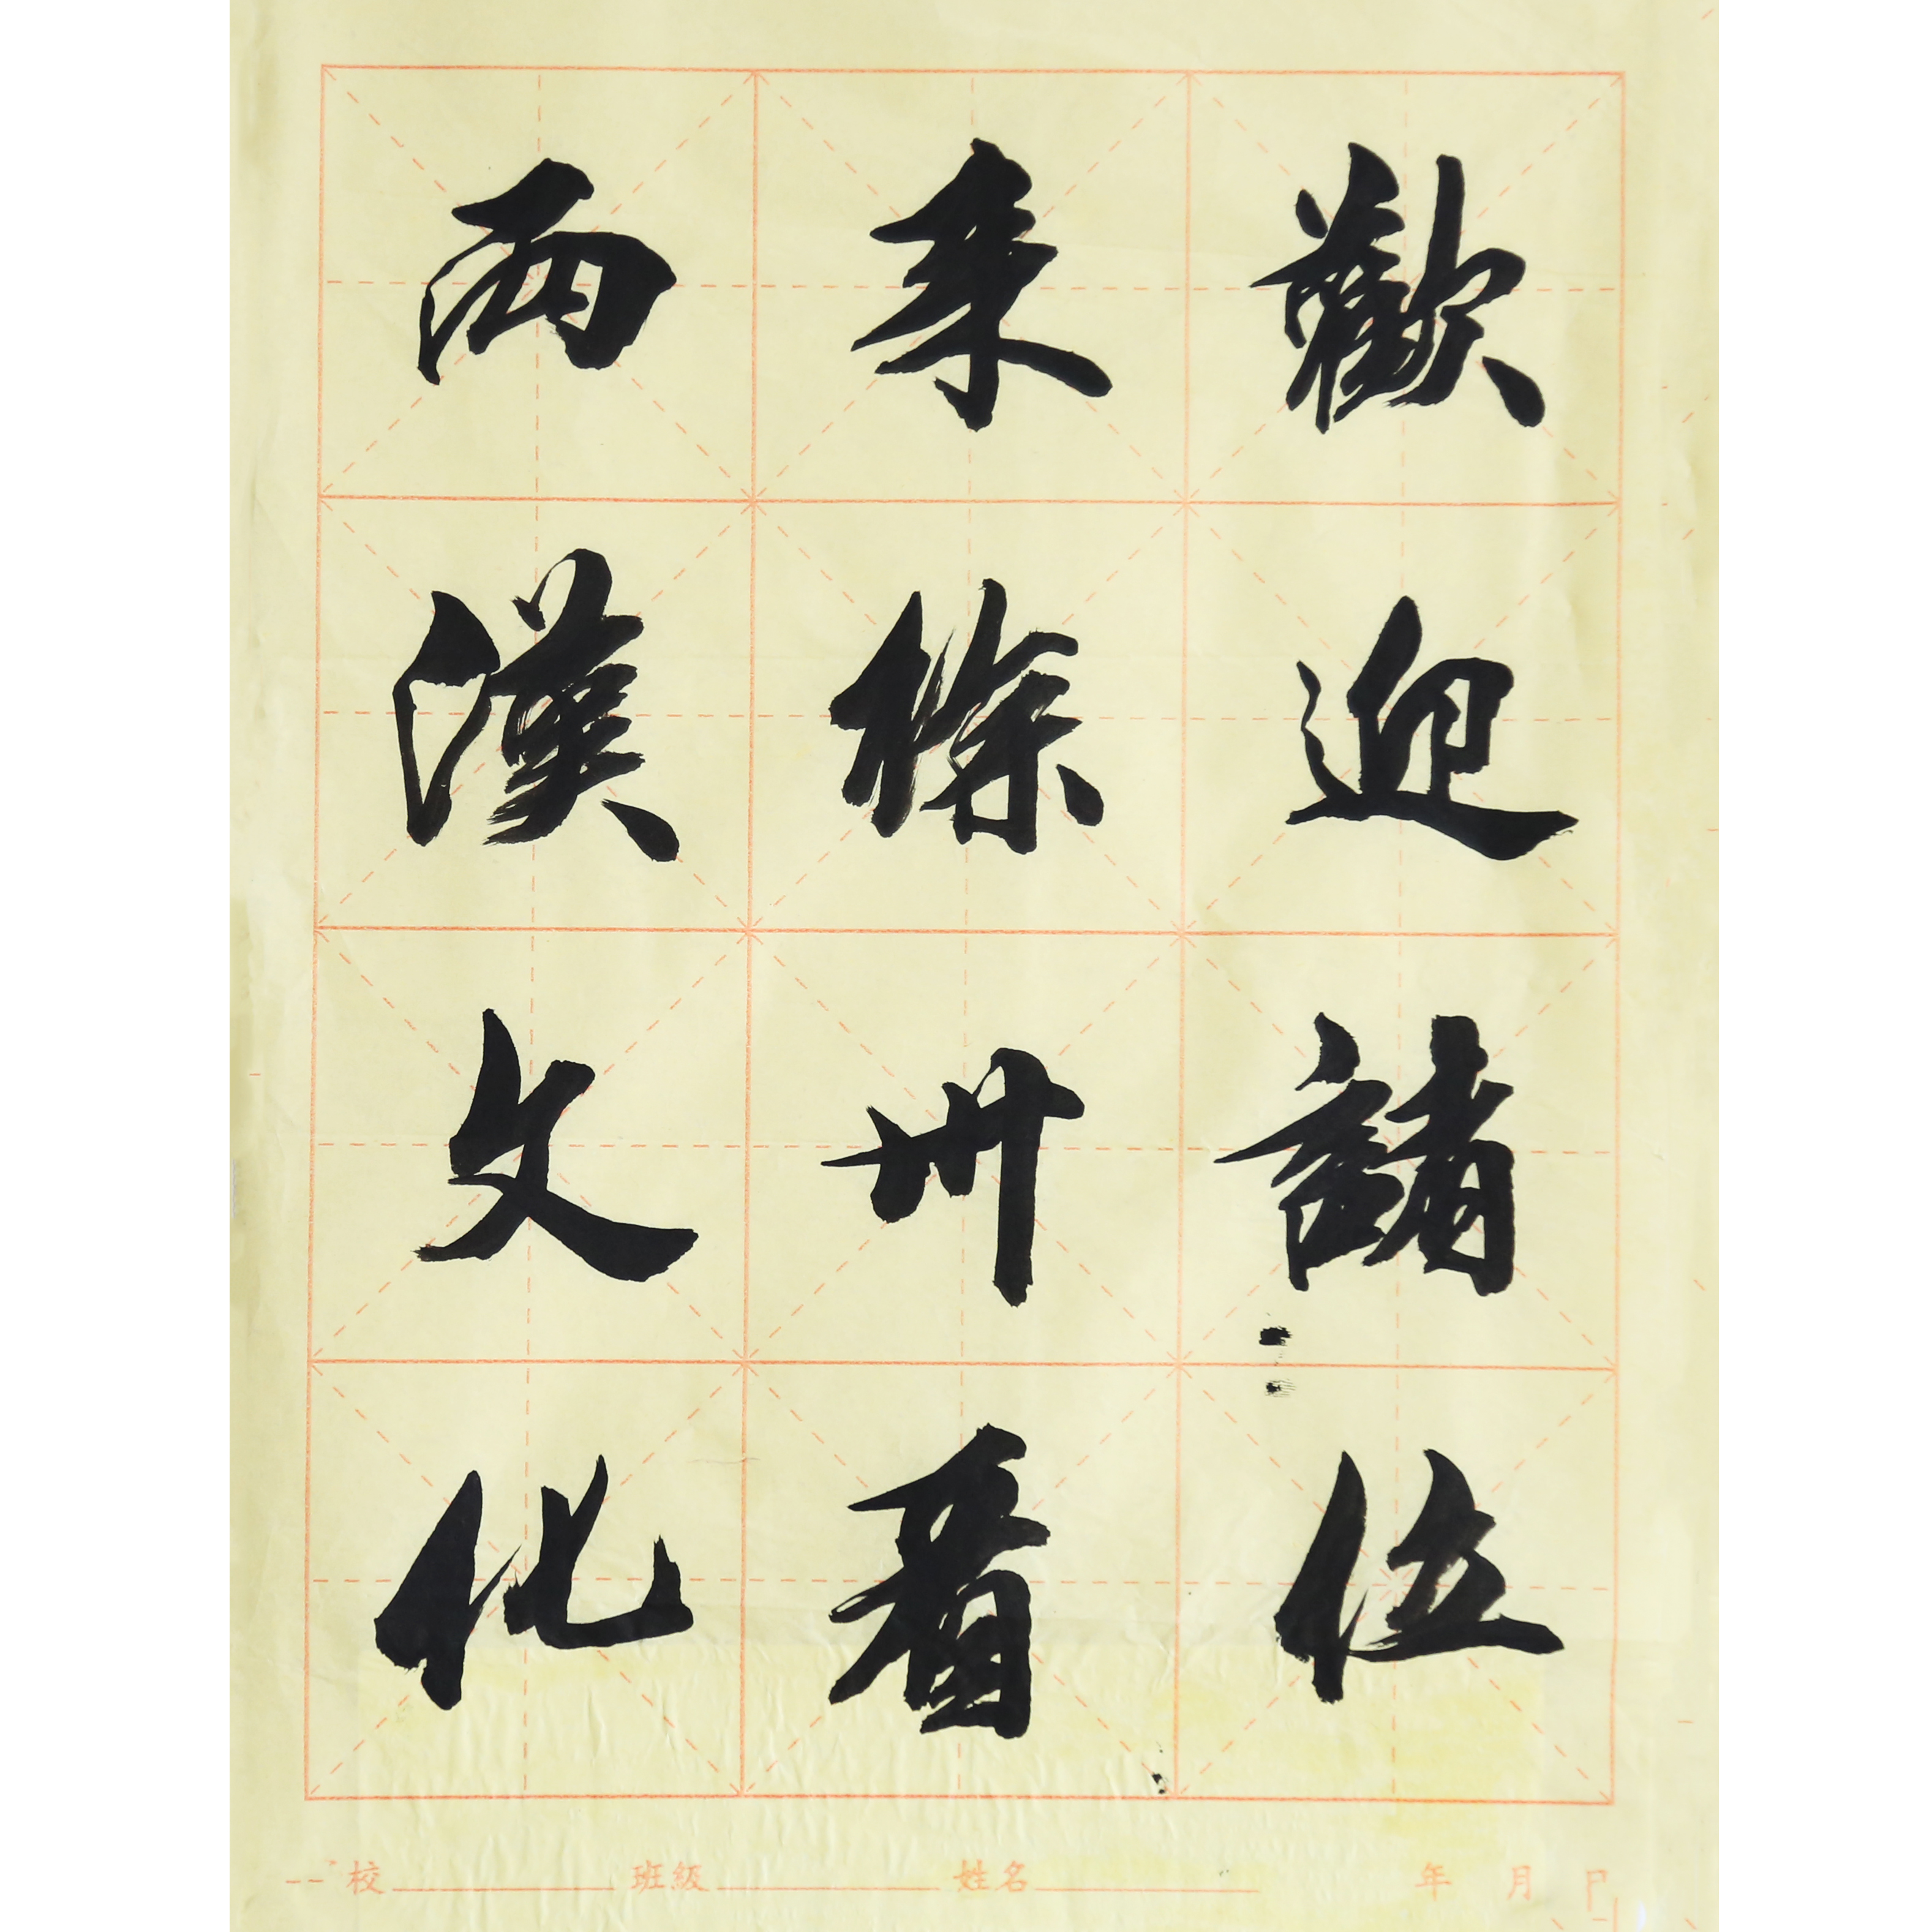 歡迎諸位
来徐州看
兩漢文化
校 班級 姓名 年 月 日